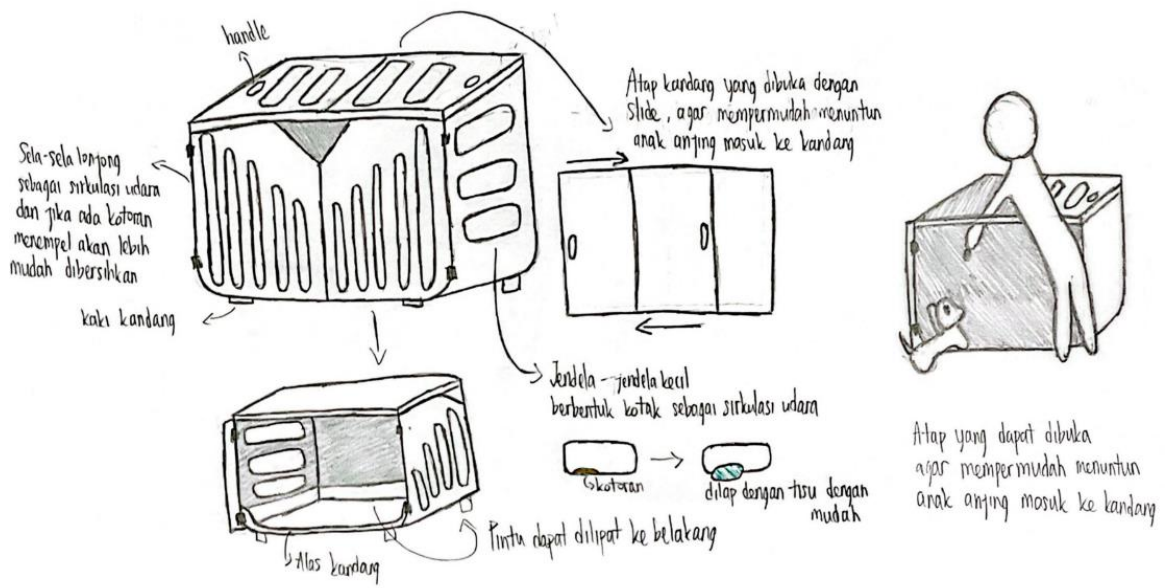 handle
Sela-sela lonjong
sebagai sirkulasi udara
dan jika ada kotoran
menempel akan lebih
mudah dibersihkan
kaki kandang
Atap kandang yang dibuka dengan
slide, agar mempermudah menuntun
anak anjing masuk ke kandang
Jendela-jendela kecil
berbentuk kotak sebagai sirkulasi udara
kotoran
dilap dengan tisu dengan
mudah
Pintu dapat dilipat ke belakang
Alas kandang
Atap yang dapat dibuka
agar mempermudah menuntun
anak anjing masuk ke kandang